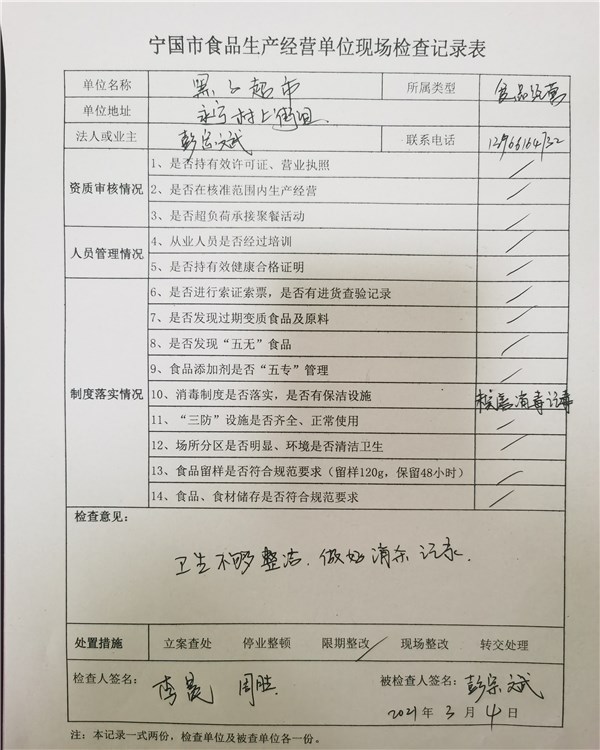 宁国市食品生产经营单位现场检查记录表
单位名称 超市 所属类型 食品经营
单位地址 永宁村上街组
法人或业主 彭宗斌 联系电话
资质审核情况
1、是否持有效许可证、营业执照
2、是否在核准范围内生产经营
3、是否超负荷承接聚餐活动
人员管理情况
4、从业人员是否经过培训
5、是否持有效健康合格证明
制度落实情况
6、是否进行索证索票，是否有进货查验记录
7、是否发现过期变质食品及原料
8、是否发现“五无”食品
9、食品添加剂是否“五专”管理
10、消毒制度是否落实，是否有保洁设施 消毒记录
11、“三防”设施是否齐全、正常使用
12、场所分区是否明显、环境是否清洁卫生
13、食品留样是否符合规范要求（留样120g，保留48小时）
14、食品、食材储存是否符合规范要求
检查意见：
卫生不够整洁.做好消杀记录.
处置措施 立案查处 停业整顿 限期整改 现场整改 转交处理
检查人签名： 周胜 被检查人签名：彭宗斌
2021年3月4日
注：本记录一式两份，检查单位及被查单位各一份。